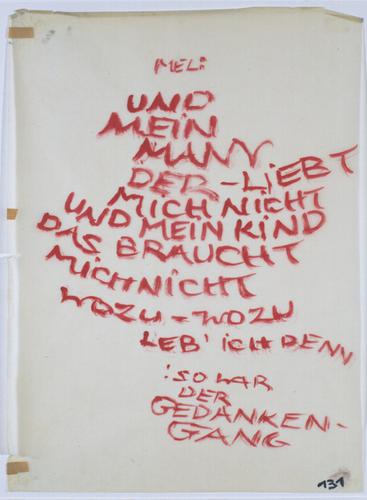 MELi
UND
MEIN
MANN
DER-LiEBT
MICH NICHT
UND MEIN KIND
DAS BRAUCHT
MICH NICHT
WOZU-WOZU
LEB' ICH DENN
:SO WAR
DER
GEDANKEN-
GANG
131